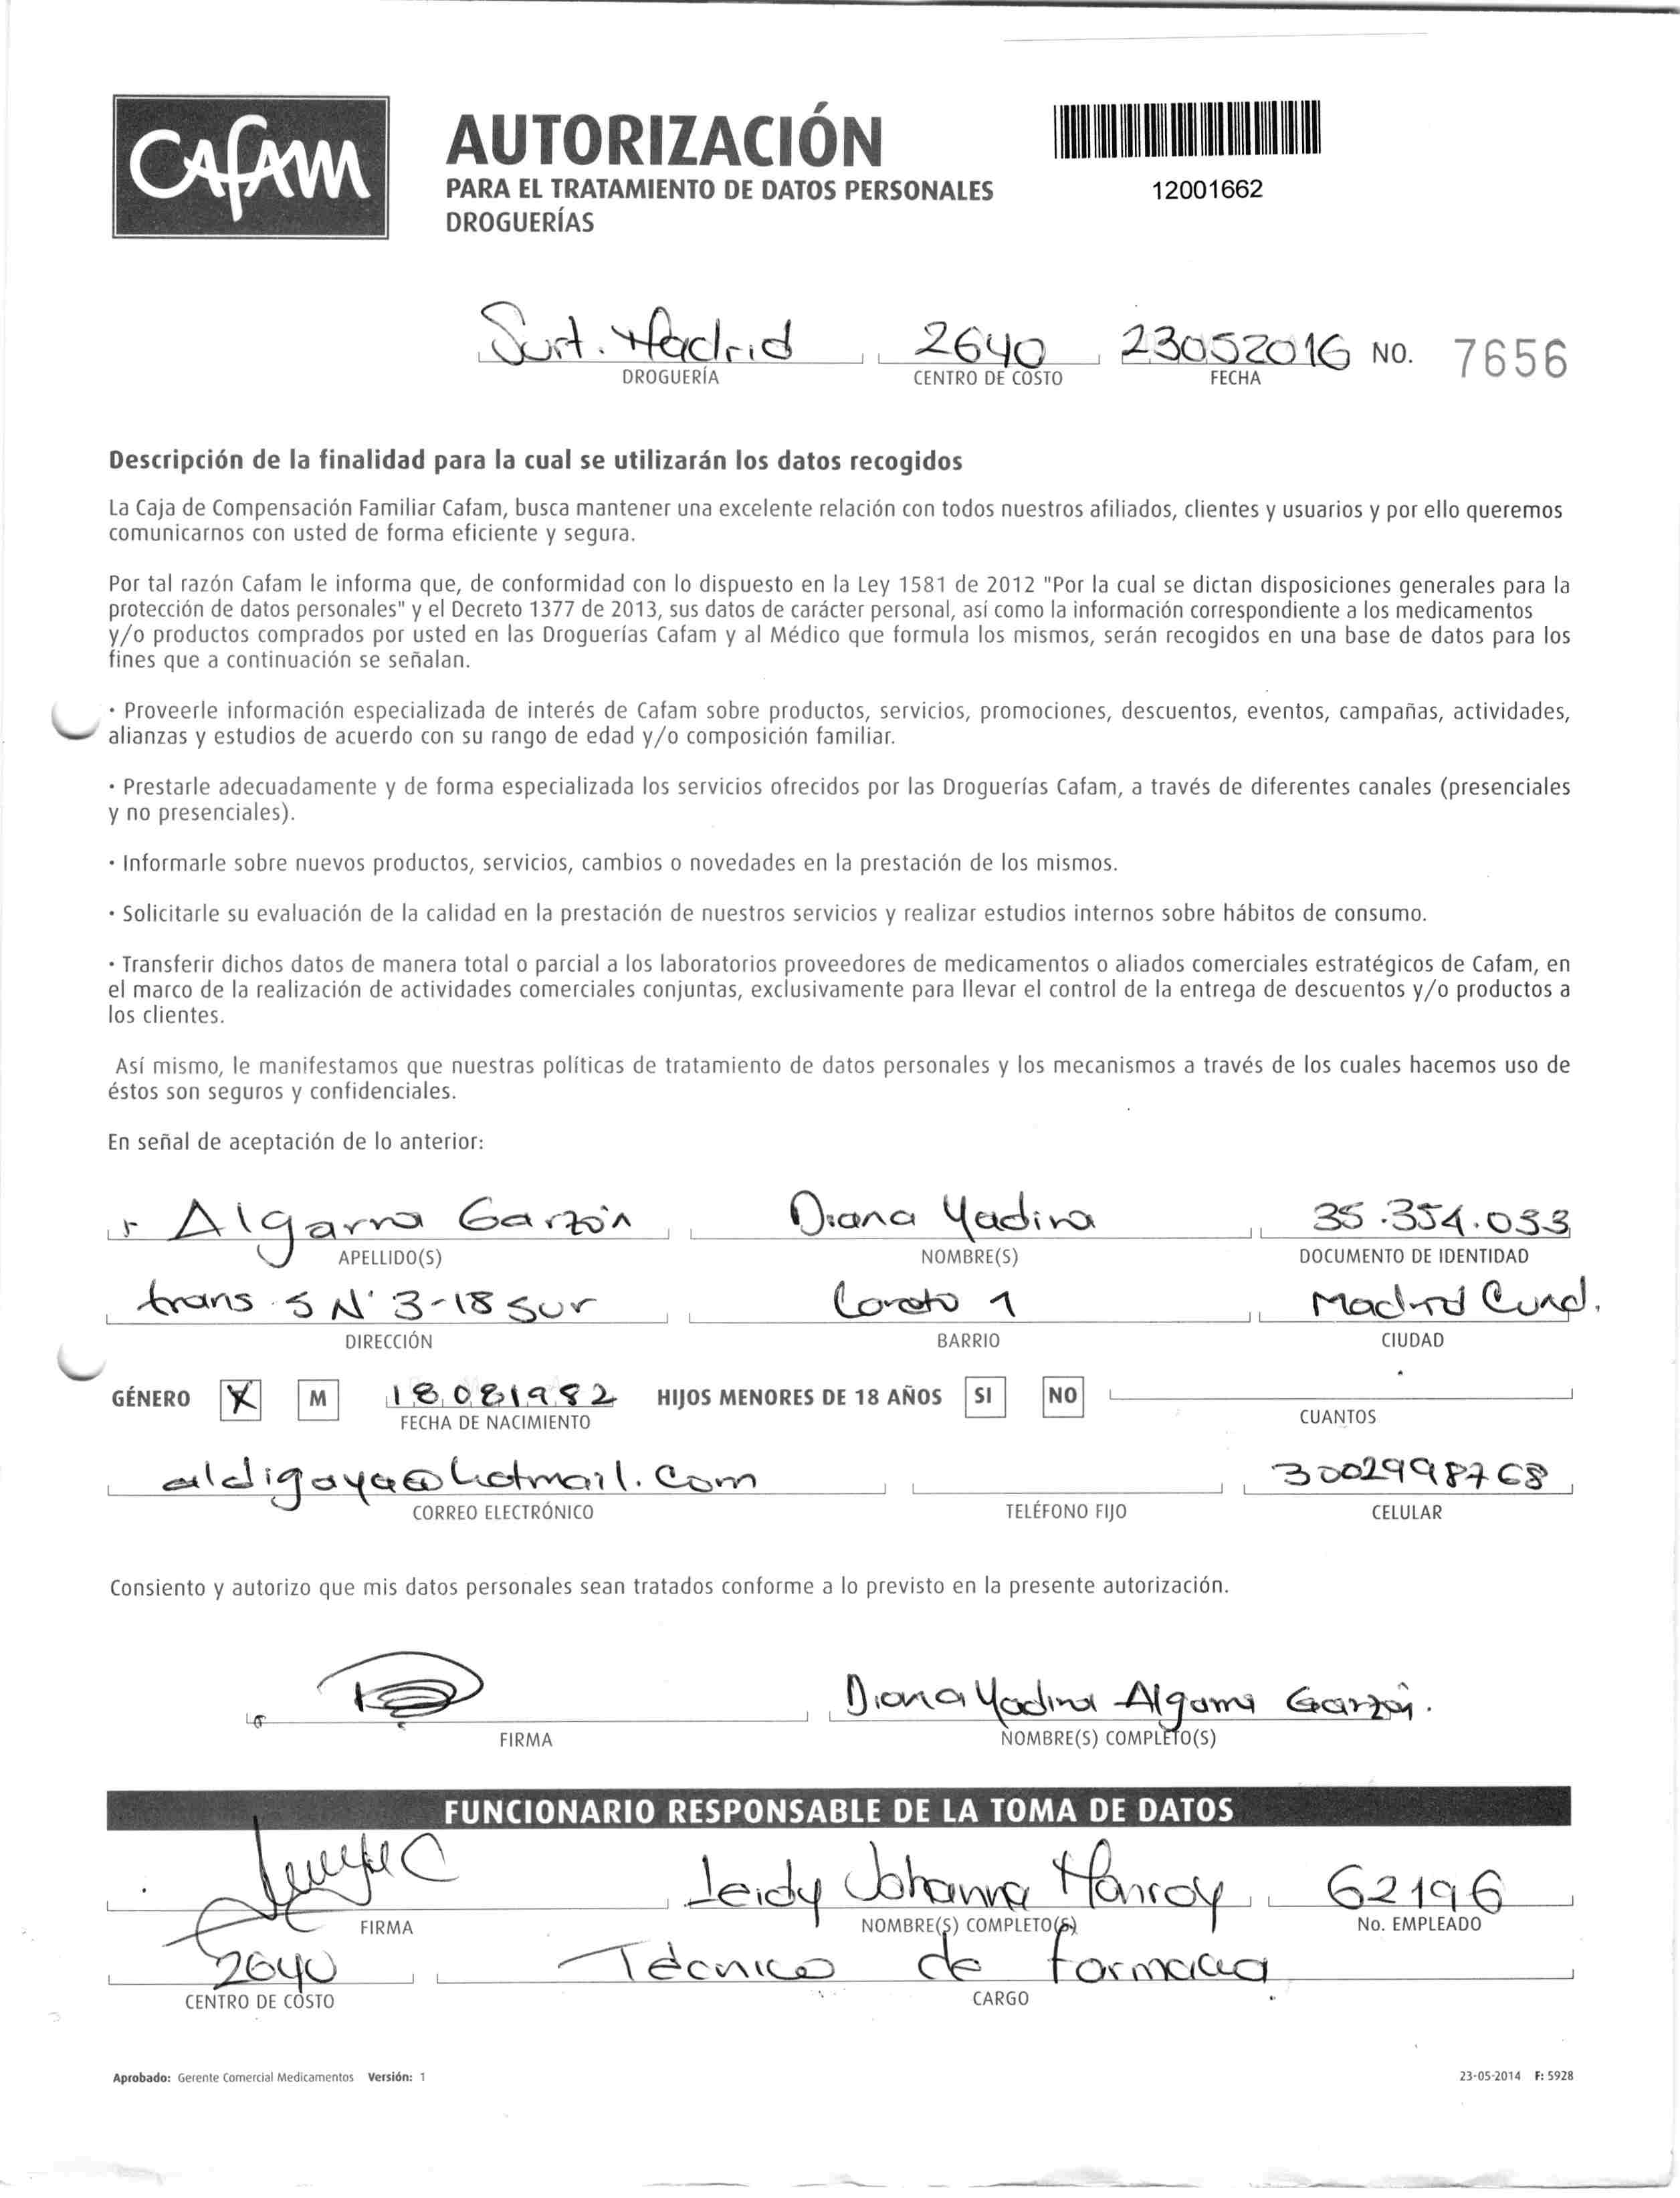 CAFAM
AUTORIZACIÓN
PARA EL TRATAMIENTO DE DATOS PERSONALES
DROGUERÍAS
12001662
Surt. Madrid 2640 23052016 NO. 7656
DROGUERÍA CENTRO DE COSTO FECHA
Descripción de la finalidad para la cual se utilizarán los datos recogidos
La Caja de Compensación Familiar Cafam, busca mantener una excelente relación con todos nuestros afiliados, clientes y usuarios y por ello queremos
comunicarnos con usted de forma eficiente y segura.
Por tal razón Cafam le informa que, de conformidad con lo dispuesto en la Ley 1581 de 2012 "Por la cual se dictan disposiciones generales para la
protección de datos personales" y el Decreto 1377 de 2013, sus datos de carácter personal, así como la información correspondiente a los medicamentos
y/o productos comprados por usted en las Droguerías Cafam y al Médico que formula los mismos, serán recogidos en una base de datos para los
fines que a continuación se señalan.
· Proveerle información especializada de interés de Cafam sobre productos, servicios, promociones, descuentos, eventos, campañas, actividades,
alianzas y estudios de acuerdo con su rango de edad y/o composición familiar.
· Prestarle adecuadamente y de forma especializada los servicios ofrecidos por las Droguerías Cafam, a través de diferentes canales (presenciales
y no presenciales).
· Informarle sobre nuevos productos, servicios, cambios o novedades en la prestación de los mismos.
· Solicitarle su evaluación de la calidad en la prestación de nuestros servicios y realizar estudios internos sobre hábitos de consumo.
· Transferir dichos datos de manera total o parcial a los laboratorios proveedores de medicamentos o aliados comerciales estratégicos de Cafam, en
el marco de la realización de actividades comerciales conjuntas, exclusivamente para llevar el control de la entrega de descuentos y/o productos a
los clientes.
Así mismo, le manifestamos que nuestras políticas de tratamiento de datos personales y los mecanismos a través de los cuales hacemos uso de
éstos son seguros y confidenciales.
En señal de aceptación de lo anterior:
Algarra Garzón Diana Yadira 35.354.053
APELLIDO(S) NOMBRE(S) DOCUMENTO DE IDENTIDAD
trans 5 N° 3-18 sur Loreto 1 Madrid Cund.
DIRECCIÓN BARRIO CIUDAD
GÉNERO X M 18081982 HIJOS MENORES DE 18 AÑOS SI NO
FECHA DE NACIMIENTO CUANTOS
aldigaya@hotmail.com 3002998768
CORREO ELECTRÓNICO TELÉFONO FIJO CELULAR
Consiento y autorizo que mis datos personales sean tratados conforme a lo previsto en la presente autorización.
Diana Yadira Algarra Garzón.
FIRMA NOMBRE(S) COMPLETO(S)
FUNCIONARIO RESPONSABLE DE LA TOMA DE DATOS
Leidy Johanna Monroy 62196
FIRMA NOMBRE(S) COMPLETO(S) No. EMPLEADO
2640 Técnico de farmacia
CENTRO DE COSTO CARGO
Aprobado: Gerente Comercial Medicamentos Versión: 1 23-05-2014 F: 5928